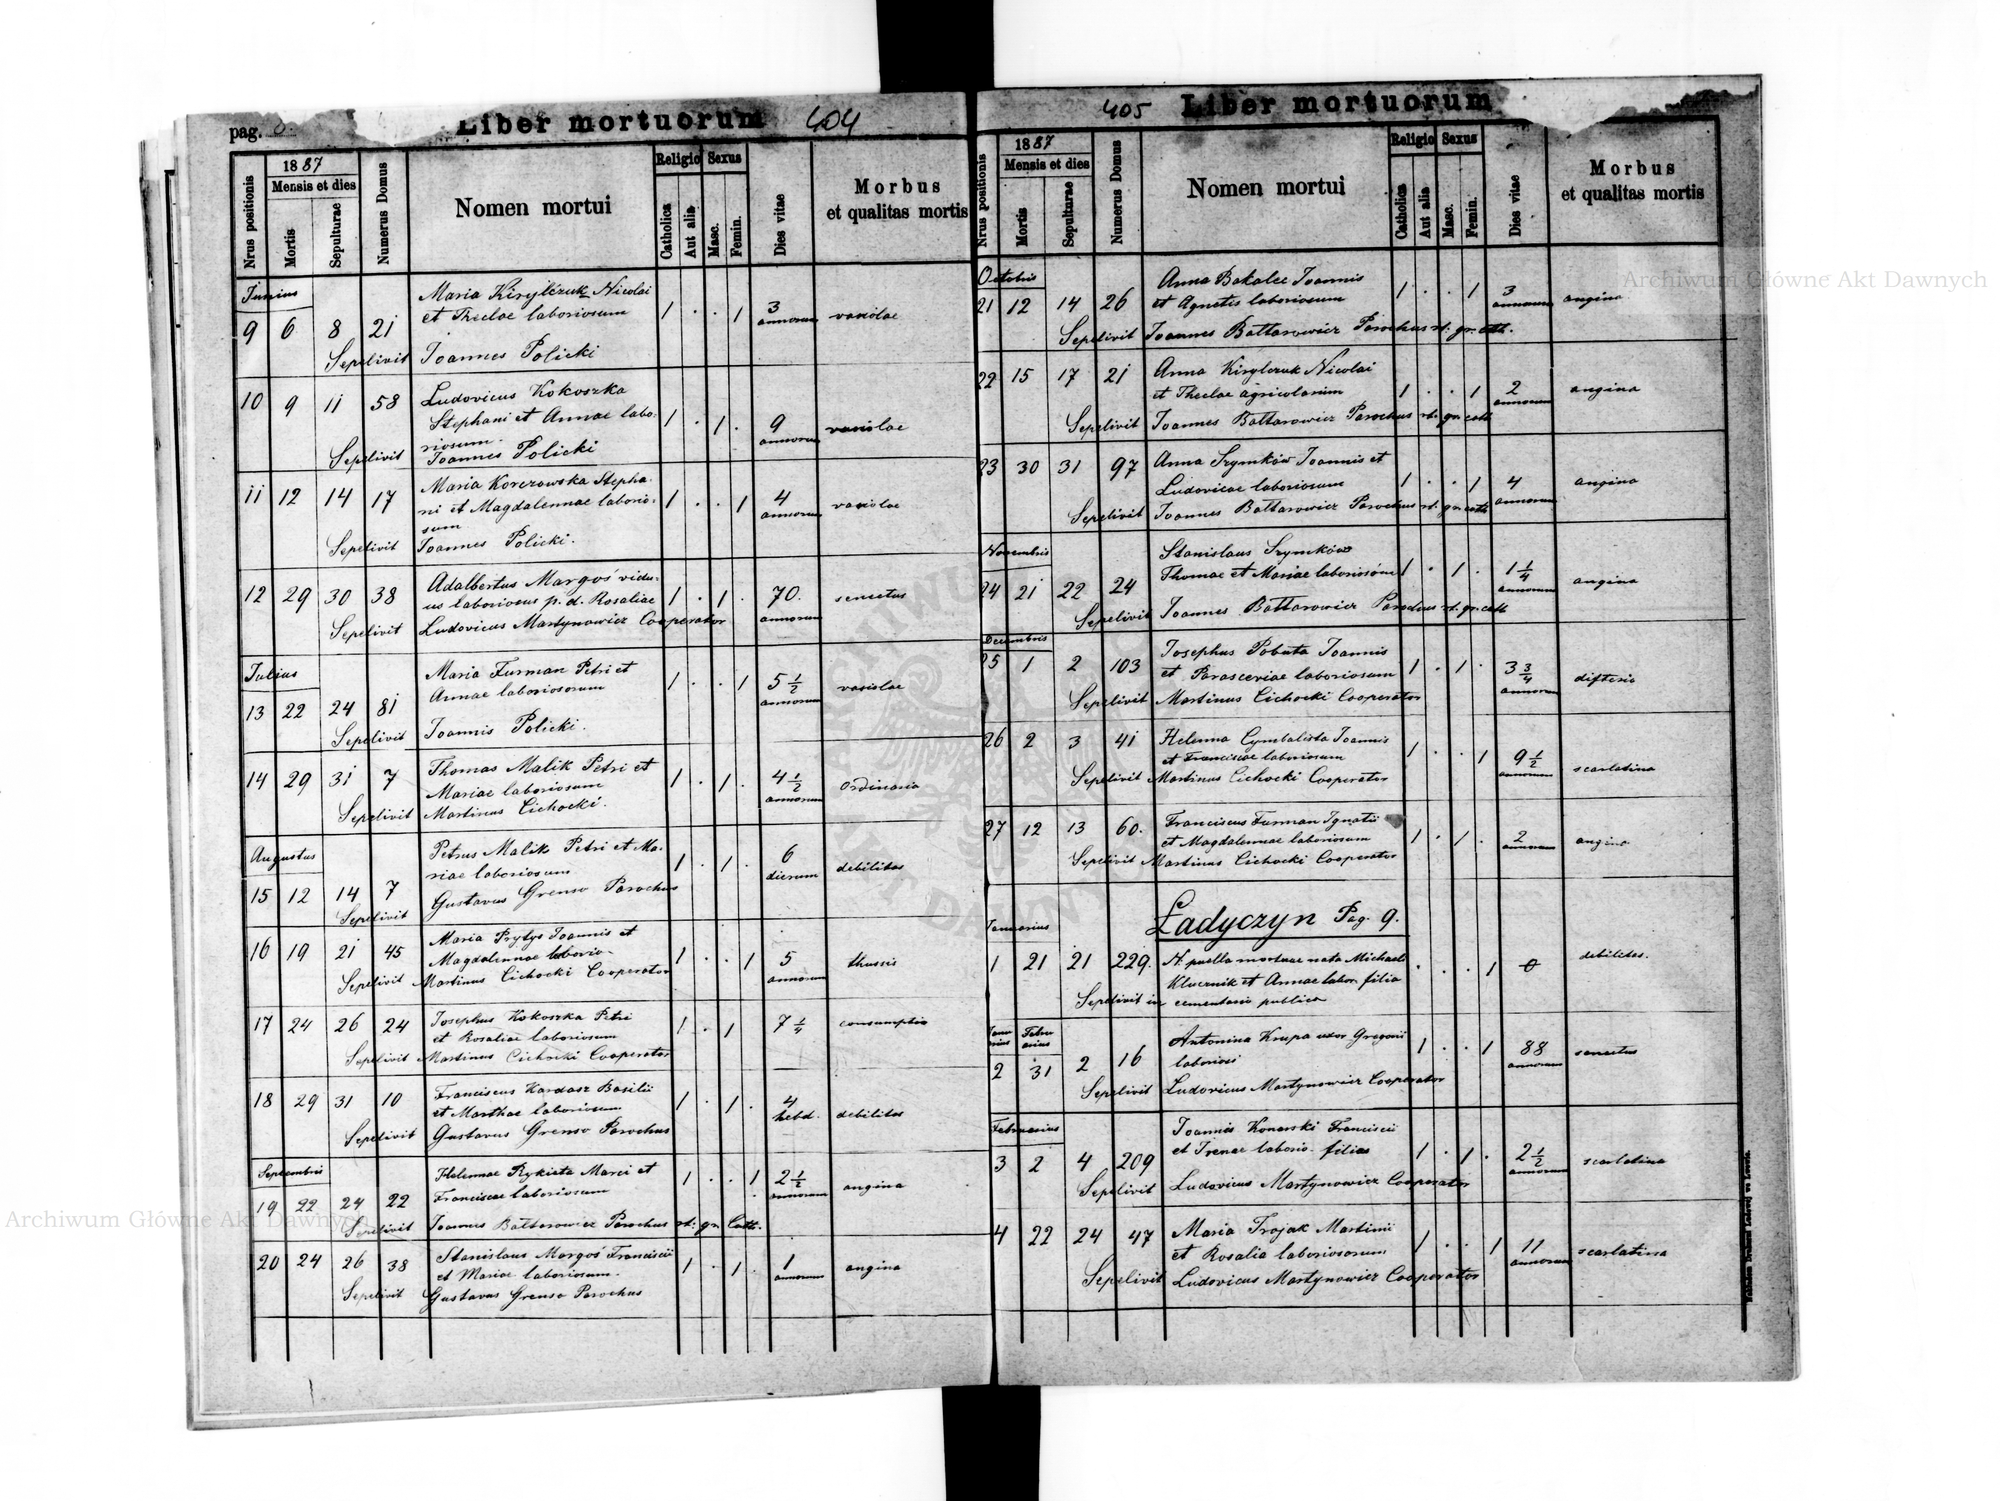 pag.
Liber mortuorum 404
Nrus positionis
1887
Mensis et dies
Mortis
Sepulturae
Numerus Domus
Nomen mortui
Religio
Catholica
Aut alia
Sexus
Masc.
Femin.
Dies vitae
Morbus
et qualitas mortis
Junius
Maria Kirylczuk Nicolai
9 6 8 21 et Theclae laboriosum 1 . . 1 3 annorum variolae
Sepelivit Joannes Policki
10 9 11 58 Ludovicus Kokoszka
Stephani et Annae labo- 1 . 1 . 9 annorum variolae
riosum.
Sepelivit Joannes Policki
11 12 14 17 Maria Korczowska Stepha-
ni et Magdalennae laborio- 1 . . 1 4 annorum variolae
sum
Sepelivit Joannes Policki.
12 29 30 38 Adalbertus Margoś vidu-
us laboriosus p. d. Rosaliae 1 . 1 . 70. annorum senectus
Sepelivit Ludovicus Martynowicz Cooperator
Julius
Maria Furman Petri et
13 22 24 81 Annae laboriosorum 1 . . 1 5 1/2 annorum variolae
Sepelivit Joannis Policki.
14 29 31 7 Thomas Malik Petri et
Mariae laboriosum 1 . 1 . 4 1/2 annorum ordinaria
Sepelivit Martinus Cichocki.
Augustus
Petrus Malik Petri et Ma-
15 12 14 7 riae laboriosum 1 . 1 . 6 dierum debilitas
Sepelivit Gustavus Grenso Parochus
16 19 21 45 Maria Prytys Joannis et
Magdalennae laborio- 1 . . 1 5 annorum thussis
Sepelivit Martinus Cichocki Cooperator
17 24 26 24 Josephus Kokoszka Petri
et Rosaliae laboriosum 1 . 1 7 1/4 consumptio
Sepelivit Martinus Cichocki Cooperator
18 29 31 10 Franciscus Kardasz Basilii
et Marthae laboriosum 1 . 1 . 4 hebd. debilitas
Sepelivit Gustavus Grenso Parochus
Septembris
Helennae Rykieta Marci et
19 22 24 22 Franciscae laboriosum 1 . . 1 2 1/2 annorum angina
Sepelivit Joannes Battarowicz Parochus rt. gr. Cath.
20 24 26 38 Stanislaus Margoś Francisci
et Mariae laboriosum. 1 . 1 . 1 annorum angina
Sepelivit Gustavus Grenso Parochus
405 Liber mortuorum
Nrus positionis
1887
Mensis et dies
Mortis
Sepulturae
Numerus Domus
Nomen mortui
Religio
Catholica
Aut alia
Sexus
Masc.
Femin.
Dies vitae
Morbus
et qualitas mortis
Octobris
21 12 14 26 Anna Bakalec Joannis
et Agnetis laboriosum 1 . . 1 3 annorum angina
Sepelivit Joannes Battarowicz Parochus rt. gr. cath.
22 15 17 21 Anna Kirylczuk Nicolai
et Theclae agricolarum 1 . . 1 2 annorum angina
Sepelivit Joannes Battarowicz Parochus rt. gr. cath
23 30 31 97 Anna Szymków Joannis et
Ludovicae laboriosum 1 . . 1 4 annorum angina
Sepelivit Joannes Battarowicz Parochus rt. gr. cath
Novembris
Stanislaus Szymków
24 21 22 24 Thomae et Mariae laboriosum 1 . 1 . 1 1/4 annorum angina
Sepelivit Joannes Battarowicz Parochus rt. gr. cath
Decembris
25 1 2 103 Josephus Pobuta Joannis
et Parasceviae laboriosum 1 . 1 . 3 3/4 annorum difteria
Sepelivit Martinus Cichocki Cooperator
26 2 3 41 Helenna Cymbalista Joannis
et Franciscae laboriosum 1 . . 1 9 1/2 annorum scarlatina
Sepelivit Martinus Cichocki Cooperator
27 12 13 60. Franciscus Furman Ignatii
et Magdalennae laboriosum 1 . 1 . 2 annorum angina
Sepelivit Martinus Cichocki Cooperator
Januarius Ładyczyn Pag. 9.
1 21 21 229. N. puella mortuae nata Michaeli
Klucznik et Annae labor. filia . . . 1 0 debilitas.
Sepelivit in cementario publico
Januarius Februarius
2 31 2 16 Antonina Krupa uxor Gregorii
laboriosi 1 . . 1 88 annorum senectus
Sepelivit Ludovicus Martynowicz Cooperator
Februarius
Joannis Konarski Francisci
3 2 4 209 et Irenae laborio. filius 1 . 1 . 2 1/2 annorum scarlatina
Sepelivit Ludovicus Martynowicz Cooperator
4 22 24 47 Maria Trojak Martinii
et Rosalia laboriosorum 1 . . 1 11 annorum scarlatina
Sepelivit Ludovicus Martynowicz Cooperator
Archiwum Główne Akt Dawnych
Archiwum Główne Akt Dawnych